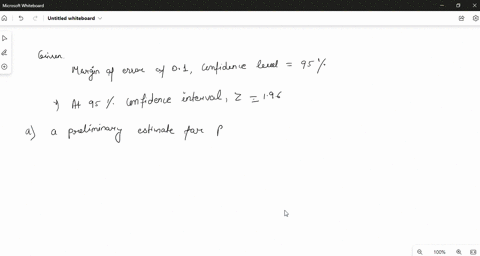 Microsoft Whiteboard
Untitled whiteboard
Given
Margin of error of 0.1, Confidence level = 95%
At 95% Confidence interval, Z = 1.96
a) a preliminary estimate for P
100%